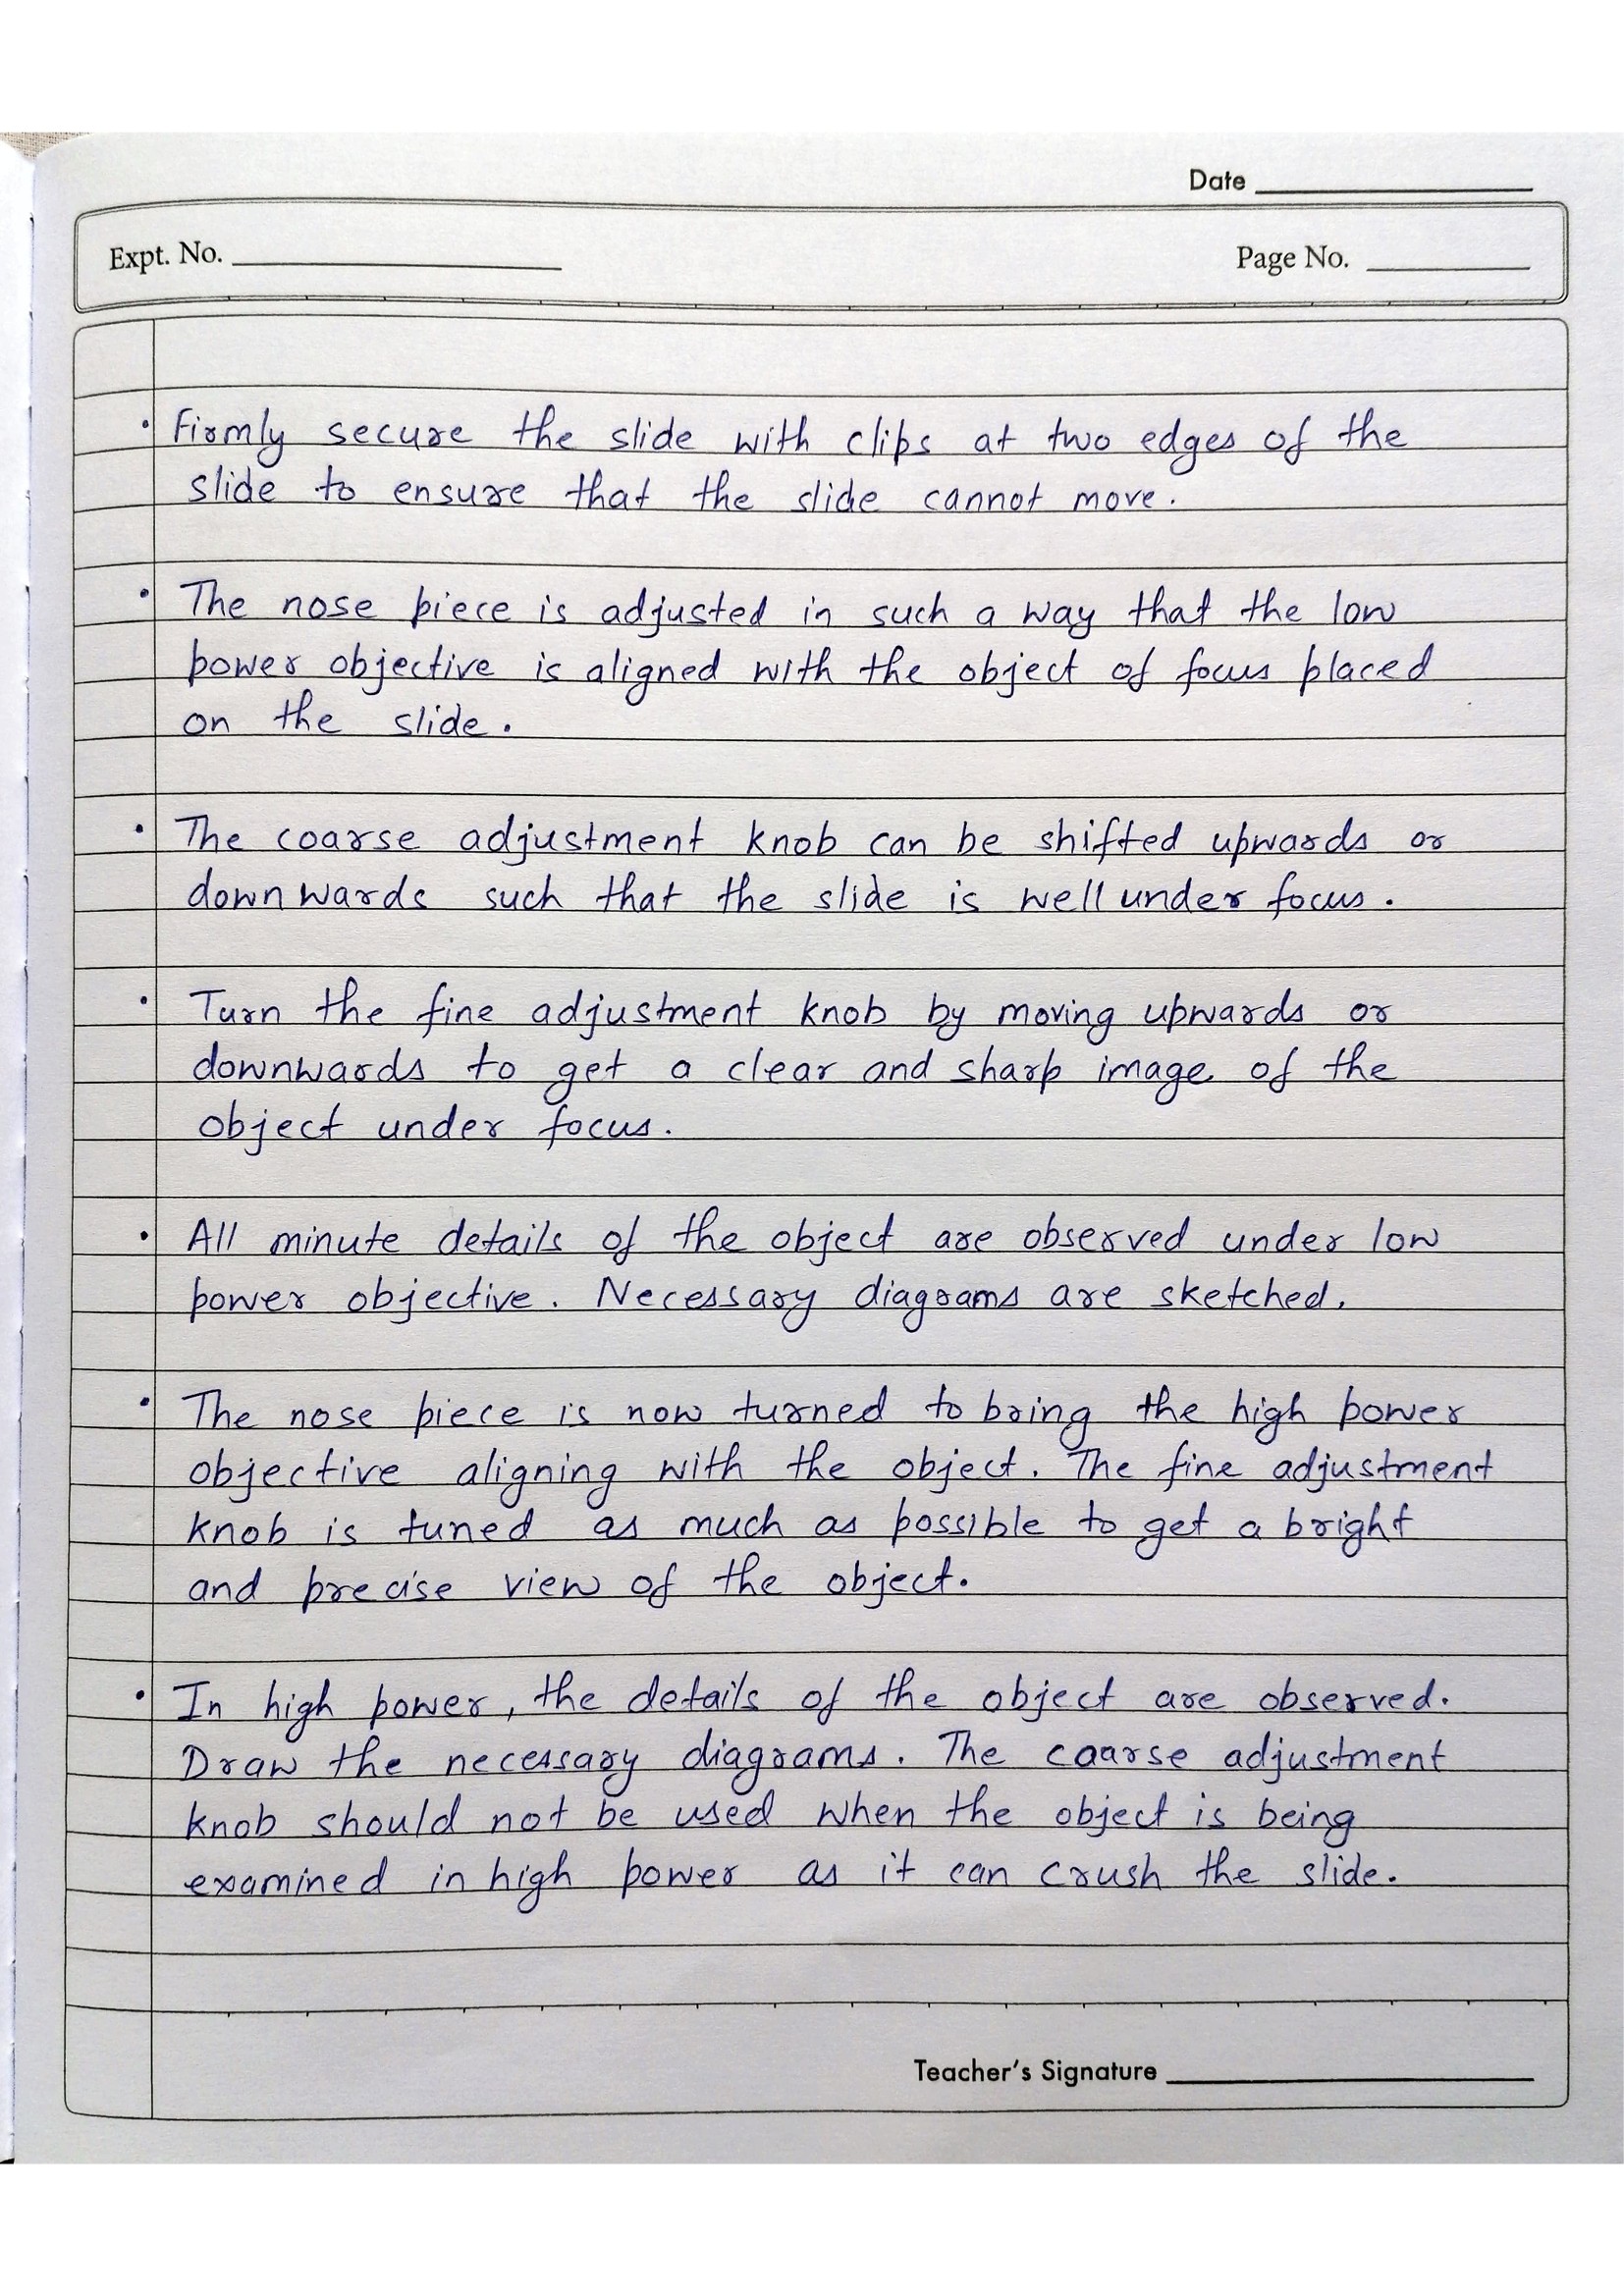 Date
Expt. No.
Page No.
• Firmly secure the slide with clips at two edges of the
slide to ensure that the slide cannot move.
• The nose piece is adjusted in such a way that the low
power objective is aligned with the object of focus placed
on the slide.
• The coarse adjustment knob can be shifted upwards or
downwards such that the slide is well under focus.
• Turn the fine adjustment knob by moving upwards or
downwards to get a clear and sharp image of the
object under focus.
• All minute details of the object are observed under low
power objective. Necessary diagrams are sketched.
• The nose piece is now turned to bring the high power
objective aligning with the object. The fine adjustment
knob is tuned as much as possible to get a bright
and precise view of the object.
• In high power, the details of the object are observed.
Draw the necessary diagrams. The coarse adjustment
knob should not be used when the object is being
examined in high power as it can crush the slide.
Teacher's Signature